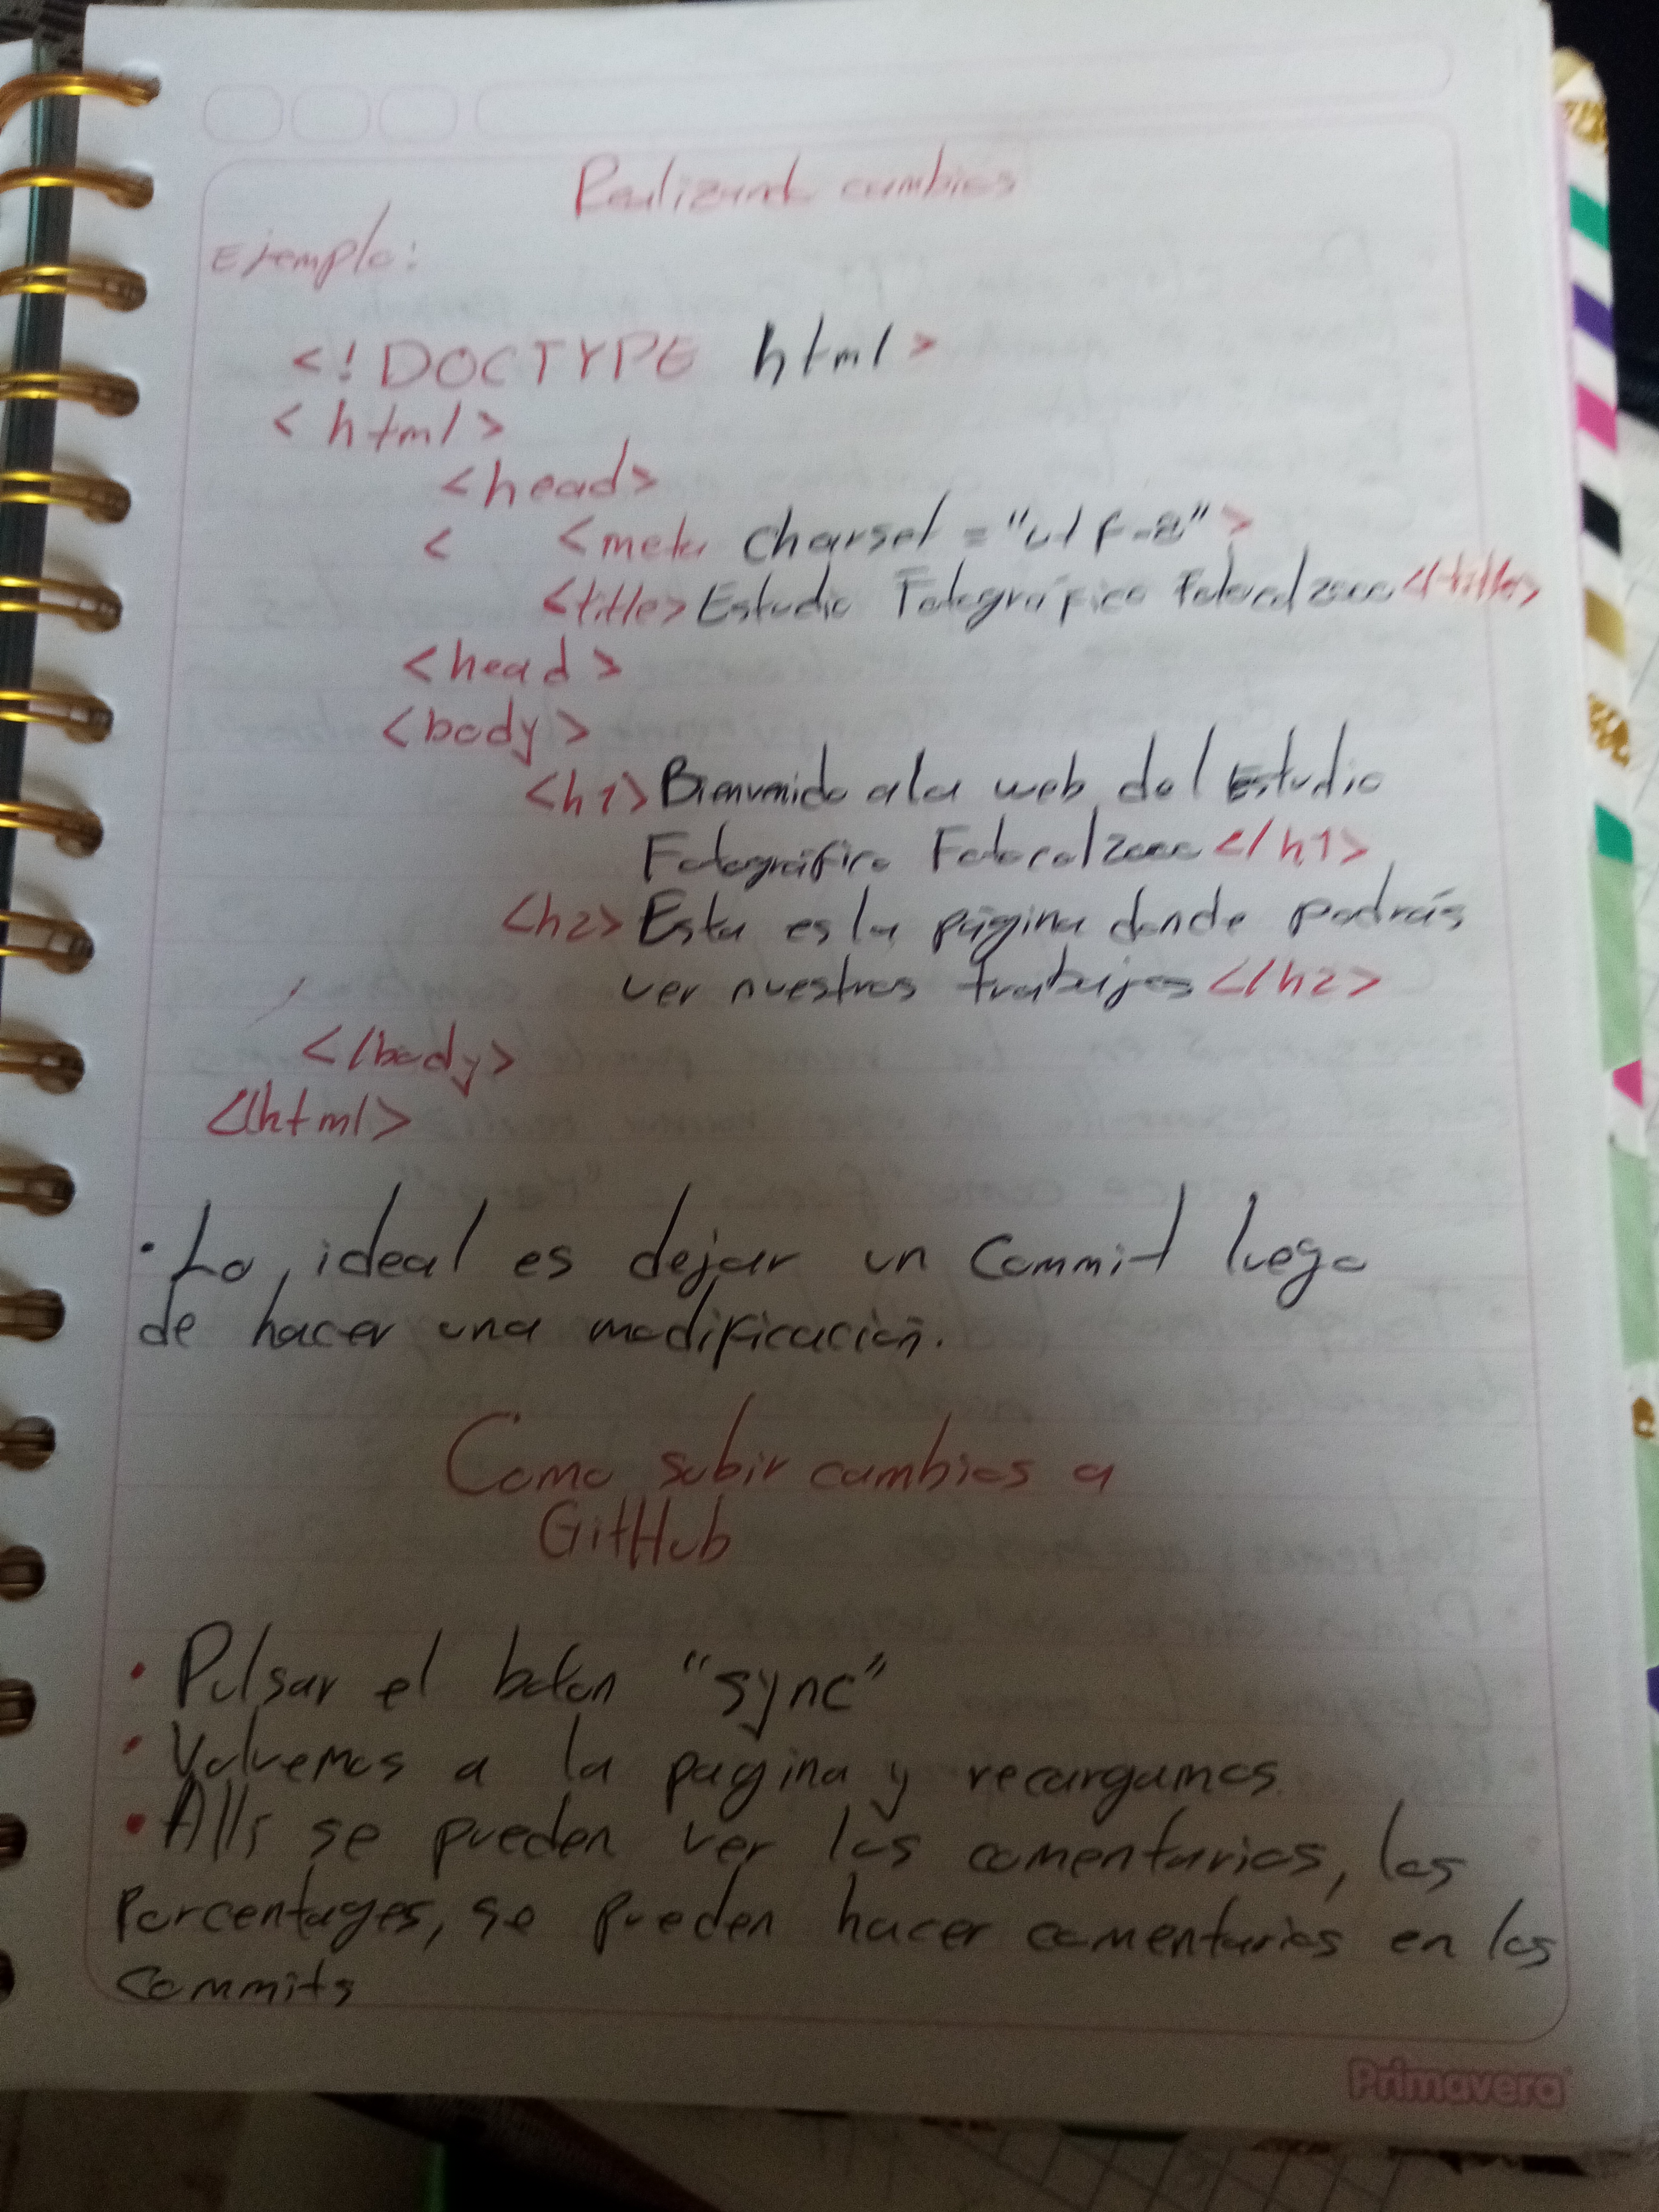 Realizando cambios
Ejemplo:
<!DOCTYPE html>
<html>
<head>
< <meta charset="utf-8">
<title>Estudio Fotográfico Fotocol2000</title>
<head>
<body>
<h1>Bienvenido a la web del Estudio
Fotográfico Fotocol2000</h1>
<h2>Esta es la página donde podrás
ver nuestros trabajos</h2>
</body>
</html>
· Lo ideal es dejar un Commit luego
de hacer una modificación.
Como subir cambios a
GitHub
• Pulsar el boton "sync"
• Volvemos a la pagina y recargamos.
• Allí se pueden ver los comentarios, los
Porcentages, se pueden hacer comentarios en los
commits
Primavera